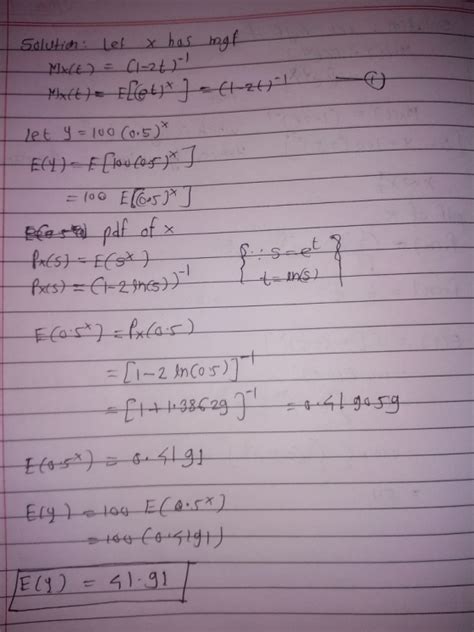 Solution: Let x has mgf
Mx(t) = (1-2t)^-1
Mx(t) = E[(et)^x] = (1-2t)^-1 — (1)
let y = 100 (0.5)^x
E(y) = E[100(0.5)^x]
= 100 E[(0.5)^x]
pdf of x
Px(s) = E(s^x) {∵ s = e^t
Px(s) = (1-2 ln(s))^-1 t = ln(s)}
E(0.5^x) = Px(0.5)
= [1-2 ln(0.5)]^-1
= [1+1.38629]^-1 = 0.419059
E(0.5^x) = 0.4191
E(y) = 100 E(0.5^x)
= 100 (0.4191)
E(y) = 41.91